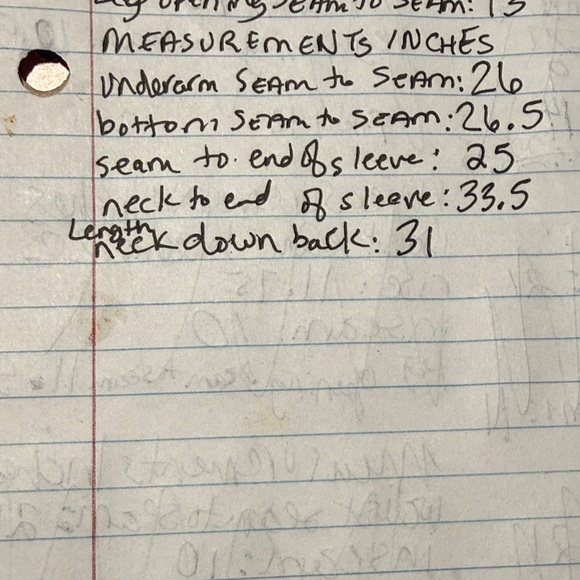 Leg opening SEAM to SEAM: 15
MEASUREMENTS INCHES
Underarm SEAM to SEAM: 26
bottom SEAM to SEAM: 26.5
seam to end of sleeve: 25
neck to end of sleeve: 33.5
Length
neck down back: 31